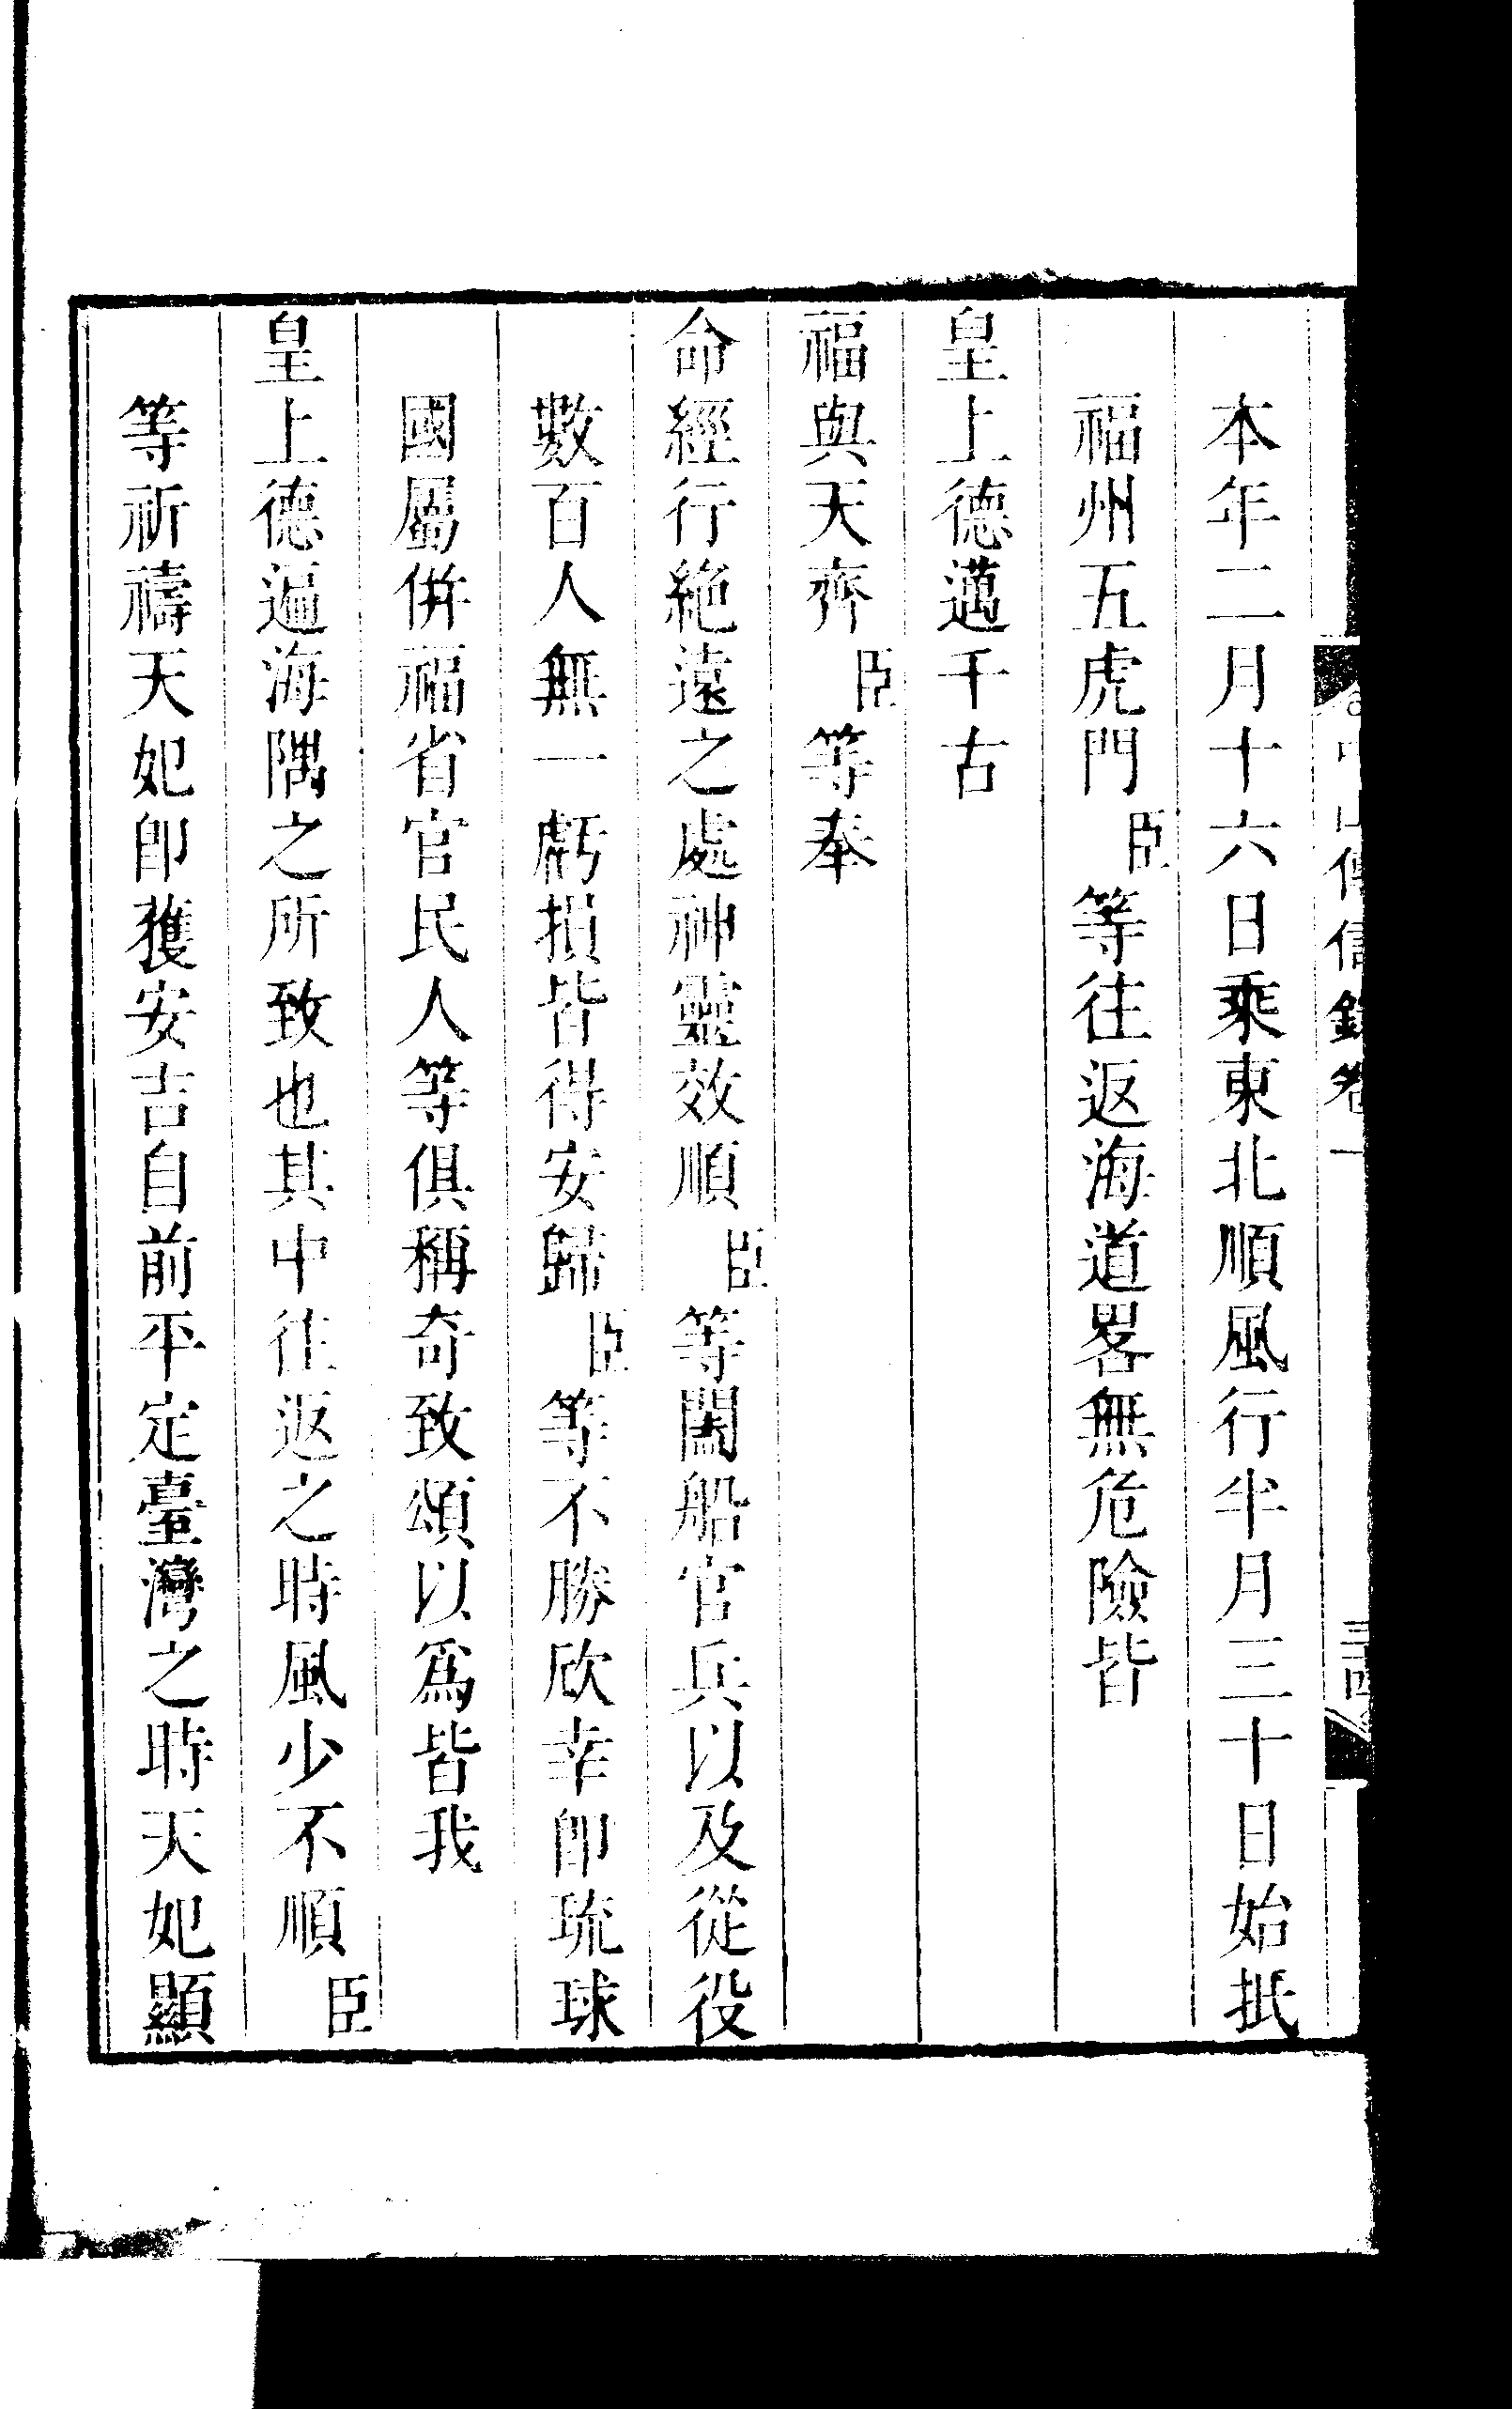 中山傳信錄卷一
三十四
本年二月十六日乘東北順風行半月三十日始抵
福州五虎門臣等往返海道畧無危險皆
皇上德邁千古
福與天齊臣等奉
命經行絶遠之處神靈效順臣等闔船官兵以及從役
數百人無一虧損皆得安歸臣等不勝欣幸卽琉球
國屬倂福省官民人等俱稱奇致頌以爲皆我
皇上德遍海隅之所致也其中往返之時風少不順臣
等祈禱天妃卽獲安吉自前平定臺灣之時天妃顯